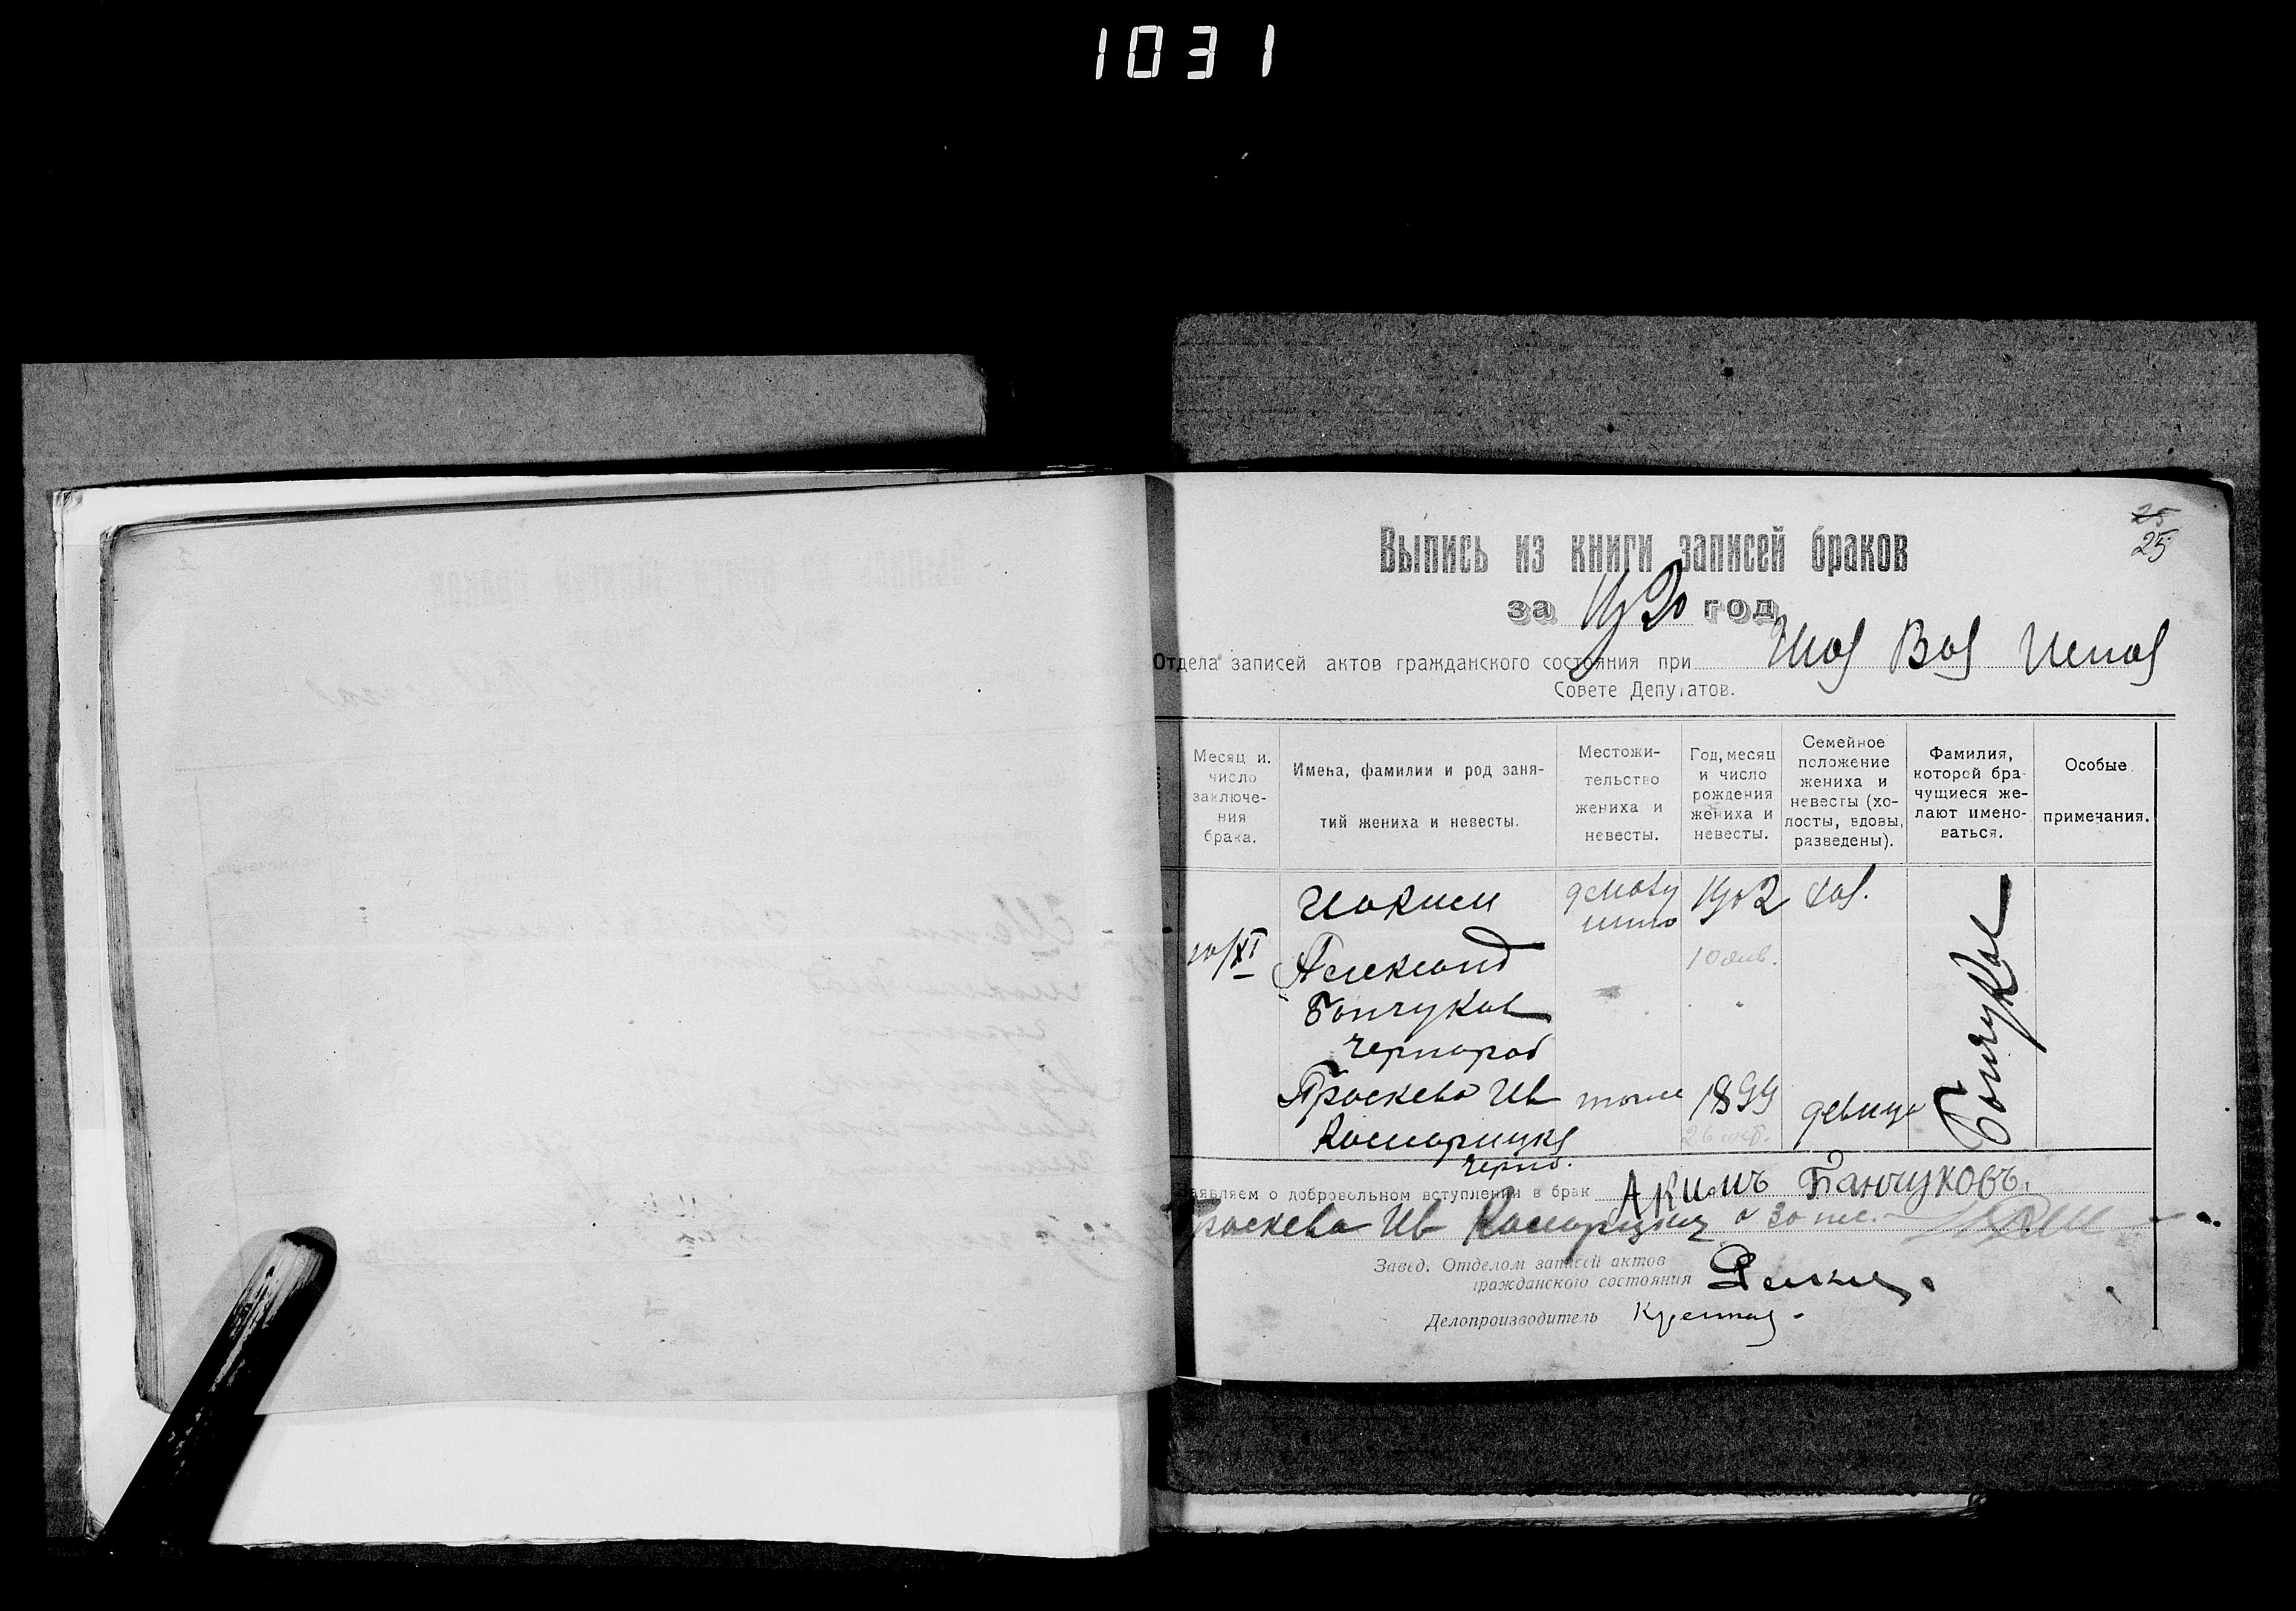 1031
25
25
Выпись из книги записей браков
за 1920 год
Отдела записей актов гражданского состояния при Шов Вол Испол
Совете Депутатов.
Месяц и число заключения брака.
Имена, фамилии и род занятий жениха и невесты.
Местожительство жениха и невесты.
Год, месяц и число рождения жениха и невесты.
Семейное положение жениха и невесты (холосты, вдовы, разведены).
Фамилия, которой брачущиеся желают именоваться.
Особые примечания.
Иоким 1902 хол.
10/XI Александ 10 янв.
Бончуков
чернораб
Проскева Ив тоже 1899 девица
26 окт.
черно.
Бончуков
Заявляем о добровольном вступлении в брак Акимъ Банчуковъ
Проскева Ив
Завед. Отделом записей актов
гражданского состояния
Делопроизводитель